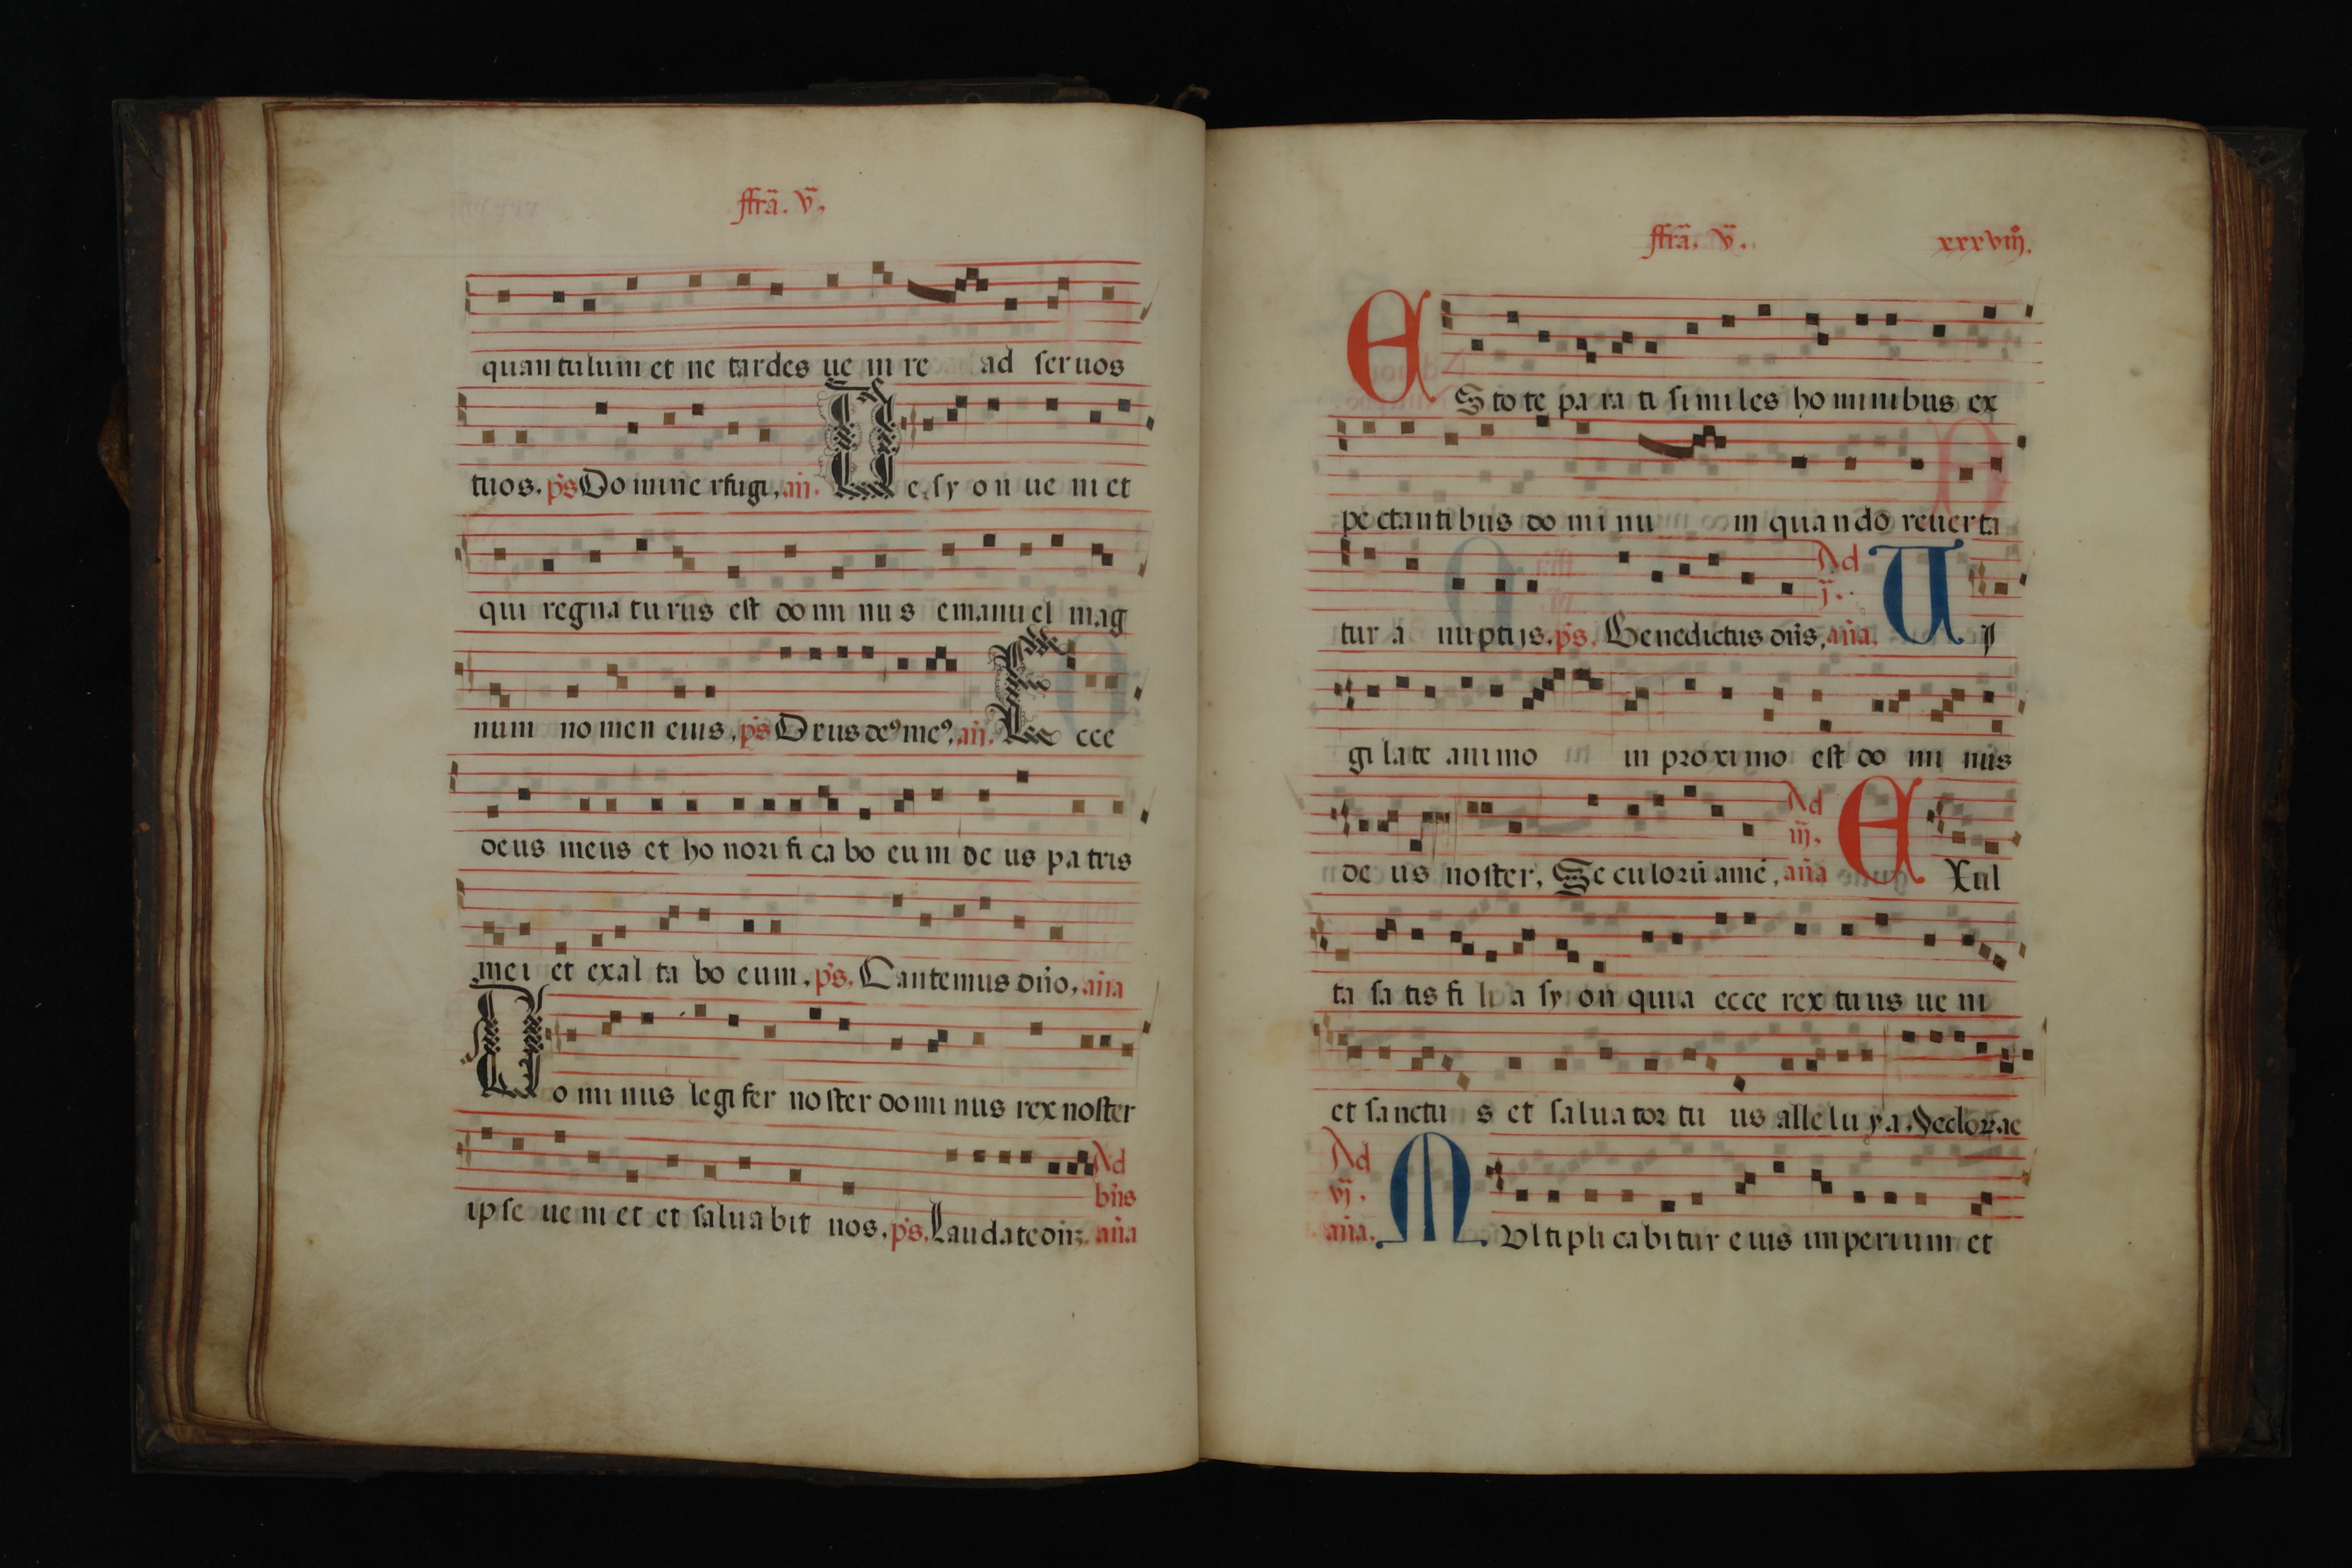 ffrã. v̄.
quantulum et ne tardes ue ni re ad seruos
tuos. ps Domine rfugi, añ. De syon ue ni et
qui regna tu rus est do mi nus emanuel mag
num nomen eius, ps Deus de9 me9, añ. Ecce
deus meus et ho nori fi ca bo eum de us patris
mei et exal ta bo eum. ps. Cantemus dño, aña
Dominus legifer noster dominus rex noster
Ad
bñs
ipse ueniet et saluabit nos. ps. Laudate aña
ffrã. v̄.
xxxviij.
Estote parati similes hominibus ex
pectantibus do mi nu m quando reuerta
Ad
j.
tur a nuptijs. ps. Benedictus dñs, aña. UI
gilate animo in proximo est do mi nus
Ad
iij,
de us noster, Seculorū amē, aña EXul
ta sa tis fi li a syon quia ecce rex tuus ue ni
et sanctu s et saluator tu us alleluya. Seclor. ae
Ad
vj.
aña. MUltiplicabitur eius imperium et